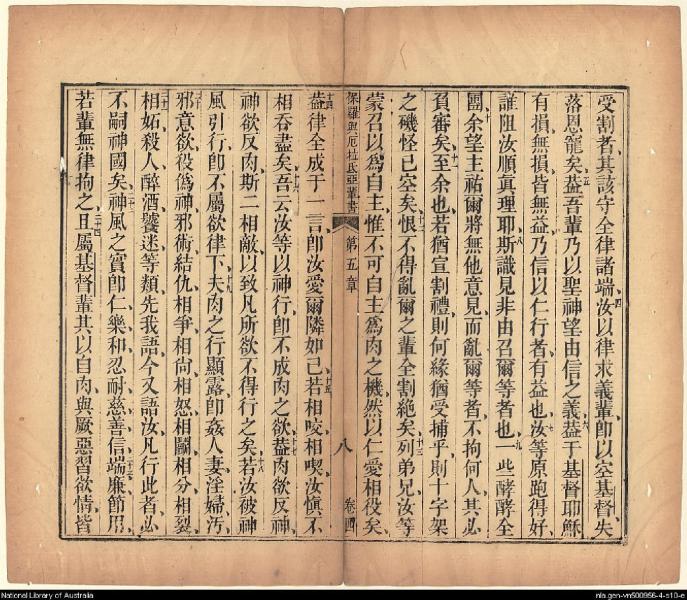 受割者其該守全律諸端四汝以律求義輩卽以空基督失
落恩寵矣五葢吾輩乃以聖神望由信之義六葢于基督耶穌
有損無損皆無益乃信以仁行者有益也七汝等原跑得好
誰阻汝順真理耶八斯識見非由召爾等者也九一些酵酵全
團十余望主祐爾將無他意見而亂爾等者不拘何人其必
負審矣十一至余也若猶宣割禮則何緣猶受捕乎則十字架
之磯怪已空矣十二恨不得亂爾之輩全割絶矣十三列弟兄汝等
蒙召以爲自主惟不可自主爲肉之機然以仁愛相役矣
保羅與厄拉氏亞輩書 第五章 八 卷四
十四葢律全成于一言卽汝愛爾隣如己十五若相咬相喫汝愼不
相吞盡矣十六吾云汝等以神行卽不成肉之欲十七葢肉欲反神
神欲反肉斯二相敵以致凡所欲不得行之矣十八若汝被神
風引行卽不屬欲律下十九夫肉之行顯露卽姦人妻淫婦汚
邪意欲二十役僞神邪術結仇相爭相尙相怒相鬬相分相裂
二十一相妬殺人醉酒饕迷等類先我語今又語汝凡行此者必
不嗣神國矣二十二神風之實卽仁樂和忍耐慈善信二十三端廉節用
若輩無律拘之二十四且屬基督輩其以自肉與厥惡習欲情皆
National Library of Australia
nla.gen-vn500956-4-s10-e